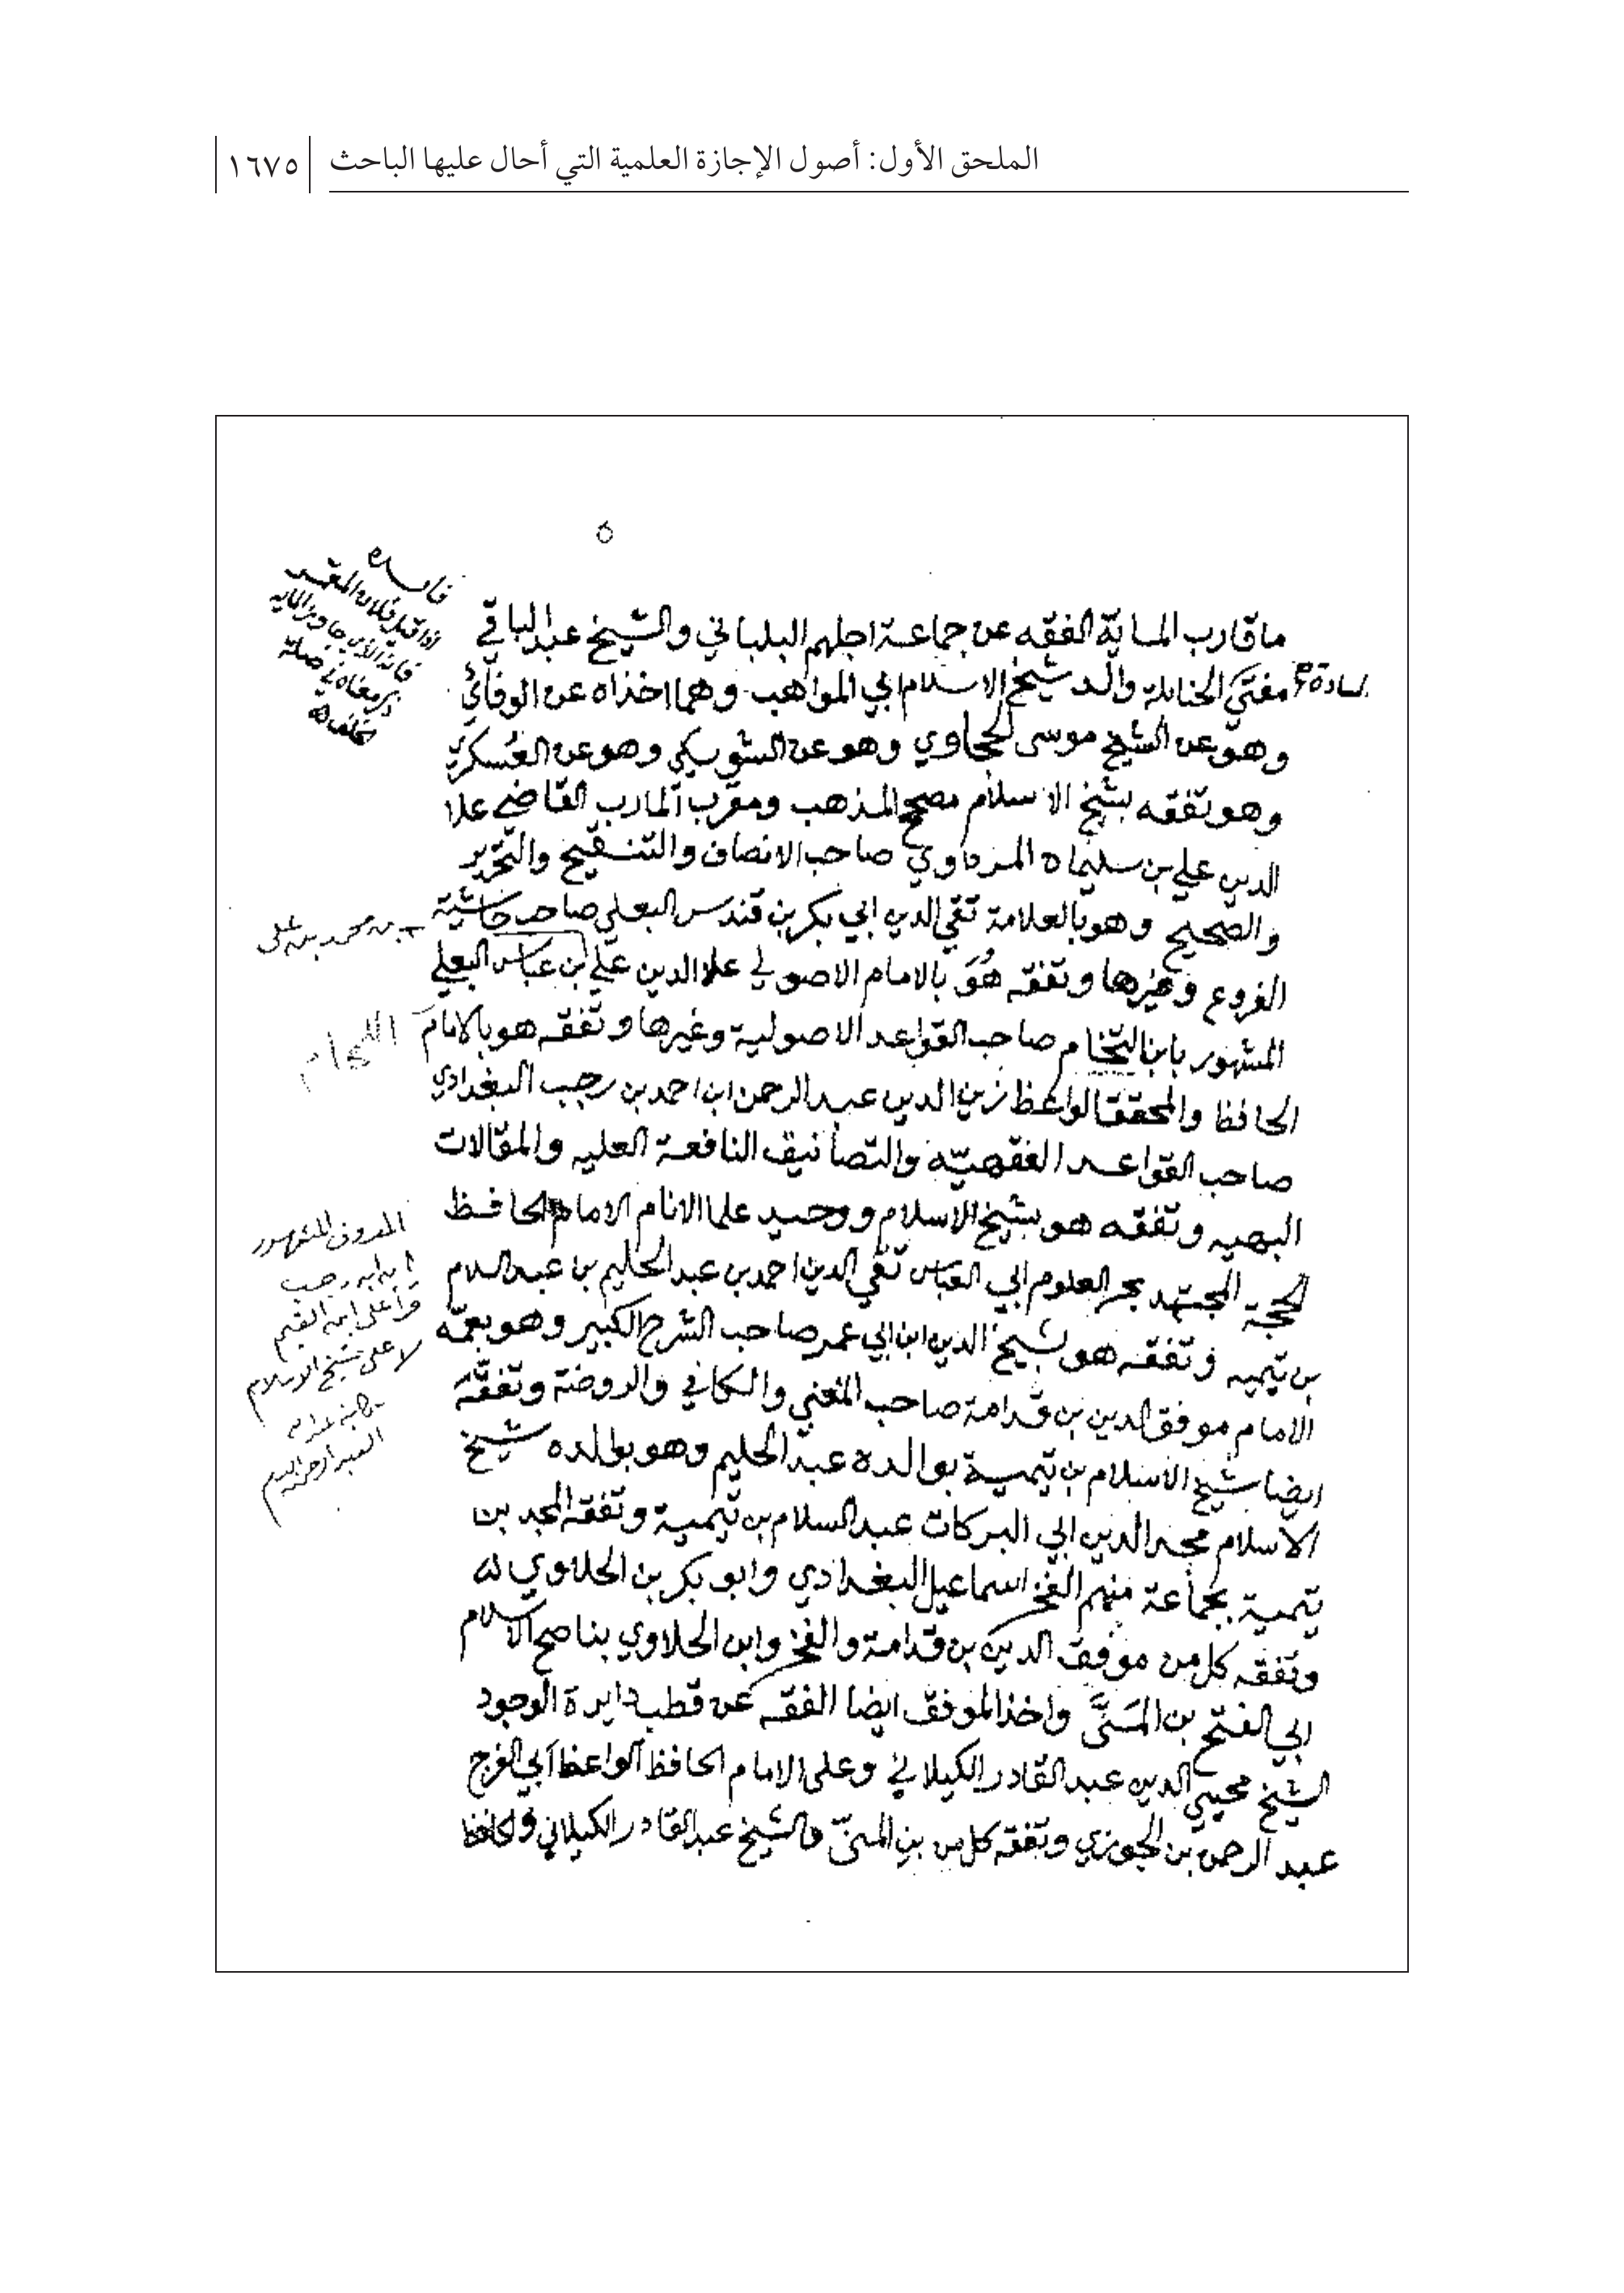 الملحق الأول: أصول الإجازة العلمية التي أحال عليها الباحث
١٦٧٥
٥
ماقارب المايّة الفقه عن جماعة اجلهم البلباني والشيخ عبد الباقي
السادة
مفتي الحنابلة والد شيخ الاسلام ابي المواهب وهما اخذاه عن الوفائي
وهو عن الشيخ موسى الحجاوي وهو عن الشويكي وهو عن العُسكري
وهو تفقه بشيخ الاسلام مصحح المذهب ومقرب المارب القاضي علا
الدين علي بن سليمان المرداوي صاحب الانصاف والتنقيح والتحرير
والصحيح وهو بالعلامة تقي الدين ابي بكر بن قندس البعلي صاحب حاشية
الفروع وغيرها وتفقه هُوَ بالامام الاصولي علا الدين علي بن عباس البعلي
بن محمد بن علي
المشهور بابن التخام صاحب القواعد الاصولية وغيرها وتفقه هو بالامام
اللحام
الحافظ والمحقق الواعظ زين الدين عبد الرحمن ابن احمد بن رجب البغدادي
صاحب القواعد الفقهيّه والتصانيف النافعة العليه والمقالات
البهيه وتفقه هو بشيخ الاسلام ووحيد علما الانام الامام الحافظ
الحجة المجتهد بحر العلوم ابي العباس تقي الدين احمد بن عبد الحليم بن عبد السلام
بن تيميه وتفقه هو بشيخ الدين ابن ابي عمر صاحب الشرح الكبير وهو بعمّه
الامام موفق الدين بن قدامة صاحب المغني والكافي والروضة وتفقّه
المعروف المشهور
ان ابن رجب
قرأ على ابن القيم
لا على شيخ الاسلام
ايضا شيخ الاسلام بن تيمية بوالده عبد الحليم وهو بوالده شيخ
الاسلام مجد الدين ابي البركات عبد السلام بن تيمية وتفقه المجد بن
تيمية بجماعة منهم الفخر اسماعيل البغدادي وابو بكر بن الحلاوي
وتفقه كل من موفق الدين بن قدامة والفخر وابن الحلاوي بناصح الاسلام
ابي الفتح بن المَنيّ واخذ الموفق ايضا الفقه عن قطب دايرة الوجود
الشيخ محيي الدين عبد القادر الكيلاني وعلى الامام الحافظ الواعظ ابي الفرج
عبد الرحمن بن الجوزي وتفقه كل من بن المنيّ والشيخ عبد القادر الكيلاني والحافظ